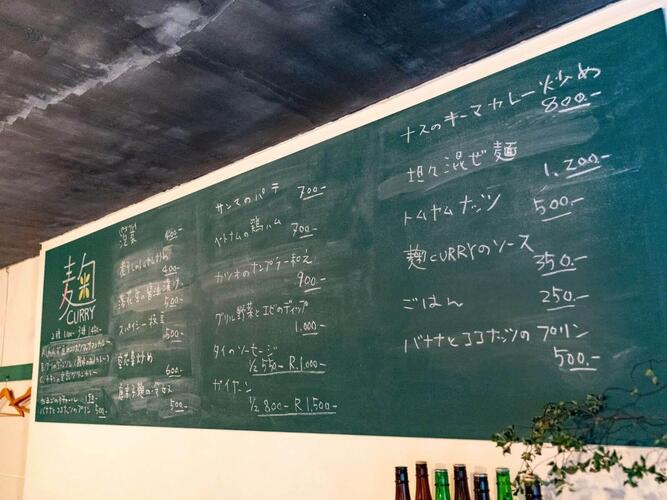 麹
CURRY
泡菜
400-
400-
500-
スパイシー枝豆
500-
600-
500-
バナナとココナッツのプリン 500-
サンマのパテ
700-
ベトナムの鶏ハム
700-
カツオのナンプラー和え
900-
グリル野菜とエビのディップ
1.000-
タイのソーセージ
1/2 550- R 1.000-
ガイヤーン
1/2 800- R 1,500-
ナスのキーマカレー炒め
800-
坦々混ぜ麺
1,200-
トムヤムナッツ
500-
麹CURRYのソース
350-
ごはん
250-
バナナとココナッツのプリン
500-